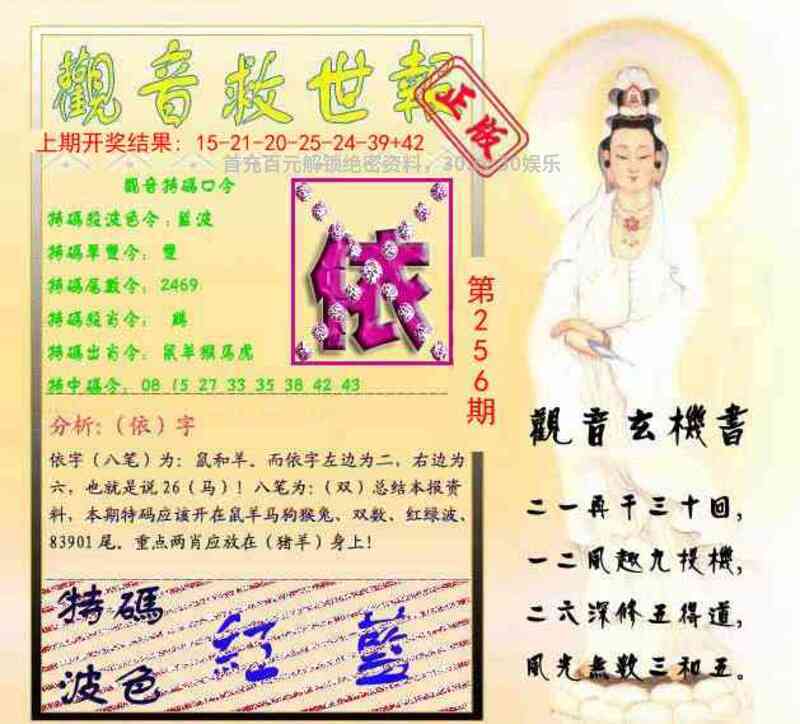 觀音救世報
正版
上期开奖结果：15-21-20-25-24-39+42
首充百元解锁绝密资料，
娱乐
觀音特碼口令
特碼段波色令：藍波
特碼單雙令：雙
特碼尾數令：2469
特碼段肖令：
特碼出肖令：鼠羊猴马虎
特中碼令：08 15 27 33 35 38 42 43
依
第256期
分析：（依）字
依字（八笔）为：鼠和羊。而依字左边为二，右边为
六，也就是说26（马）！八笔为：（双）总结本报资
料，本期特码应该开在鼠羊马狗猴兔、双数、红绿波、
83901尾。重点两肖应放在（猪羊）身上！
特碼
波色
紅 藍
觀音玄機書
二一再干三十回，
一二風趣九投機，
二六深修五得道，
風光無数三和五。